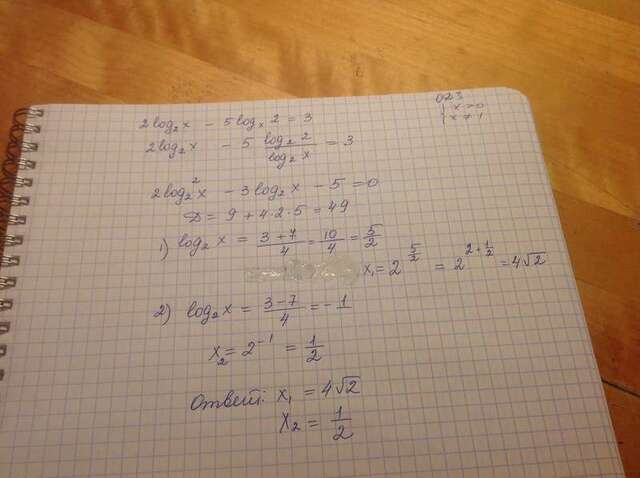 2log₂x - 5logₓ2 = 3
ОДЗ
{ x > 0
x ≠ 1
2log₂x - 5 log₂2/log₂x = 3
2log₂²x - 3log₂x - 5 = 0
D = 9 + 4·2·5 = 49
1) log₂x = (3+7)/4 = 10/4 = 5/2
x₁ = 2^(5/2) = 2^(2+1/2) = 4√2
2) log₂x = (3-7)/4 = -1
x₂ = 2⁻¹ = 1/2
Ответ: x₁ = 4√2
x₂ = 1/2